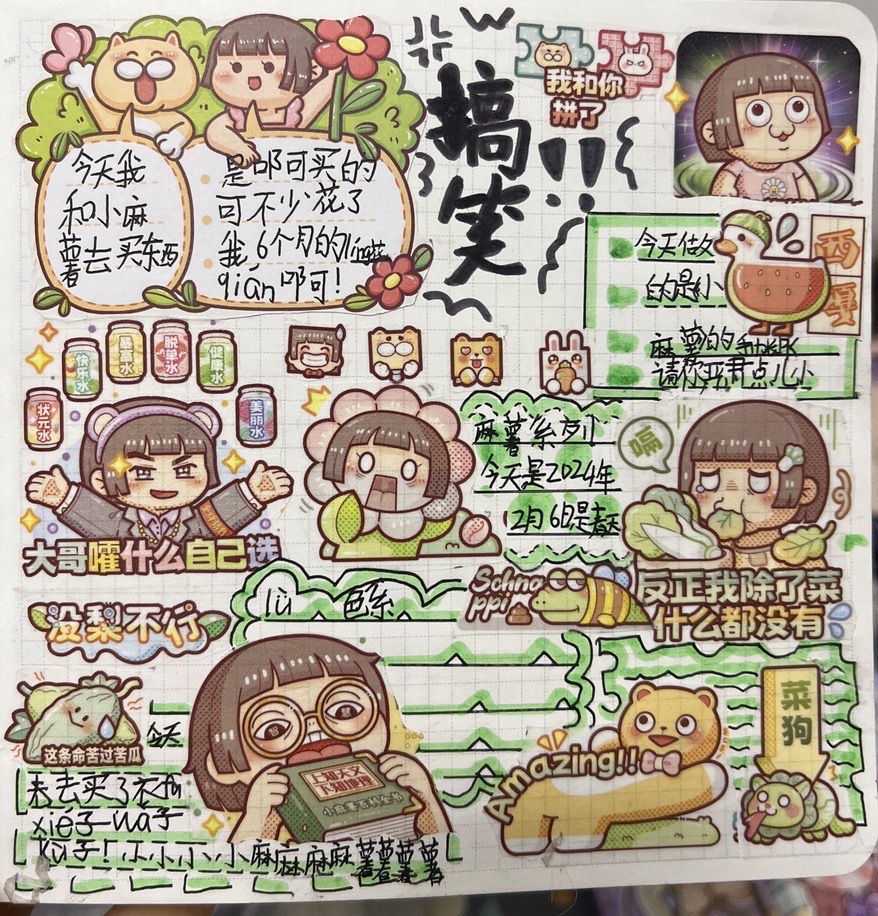 今天我
和小麻
薯去买东西
是叩可买的
可不少花了
我6个月的líng花
qián叩可！
搞笑！！
我和你
拼了
今天估久
的是小
麻薯的
请你买君点儿小
西
夏
麻薯系列
今天是2024年
2月6日是春天
状元水
快乐水
暴富水
脱单水
健康水
美丽水
大哥嚯什么自己选
嗝
反正我除了菜
什么都没有
没梨不行
lǜ 色系
Schna
ppi
这条命苦过苦瓜
今天
我去买了衣和
xié子-wà子
kù子！小小小小小麻麻麻麻薯薯薯薯
智
慧
上知天文
下知地理
小麻薯百科全书
Amazing!!
菜
狗